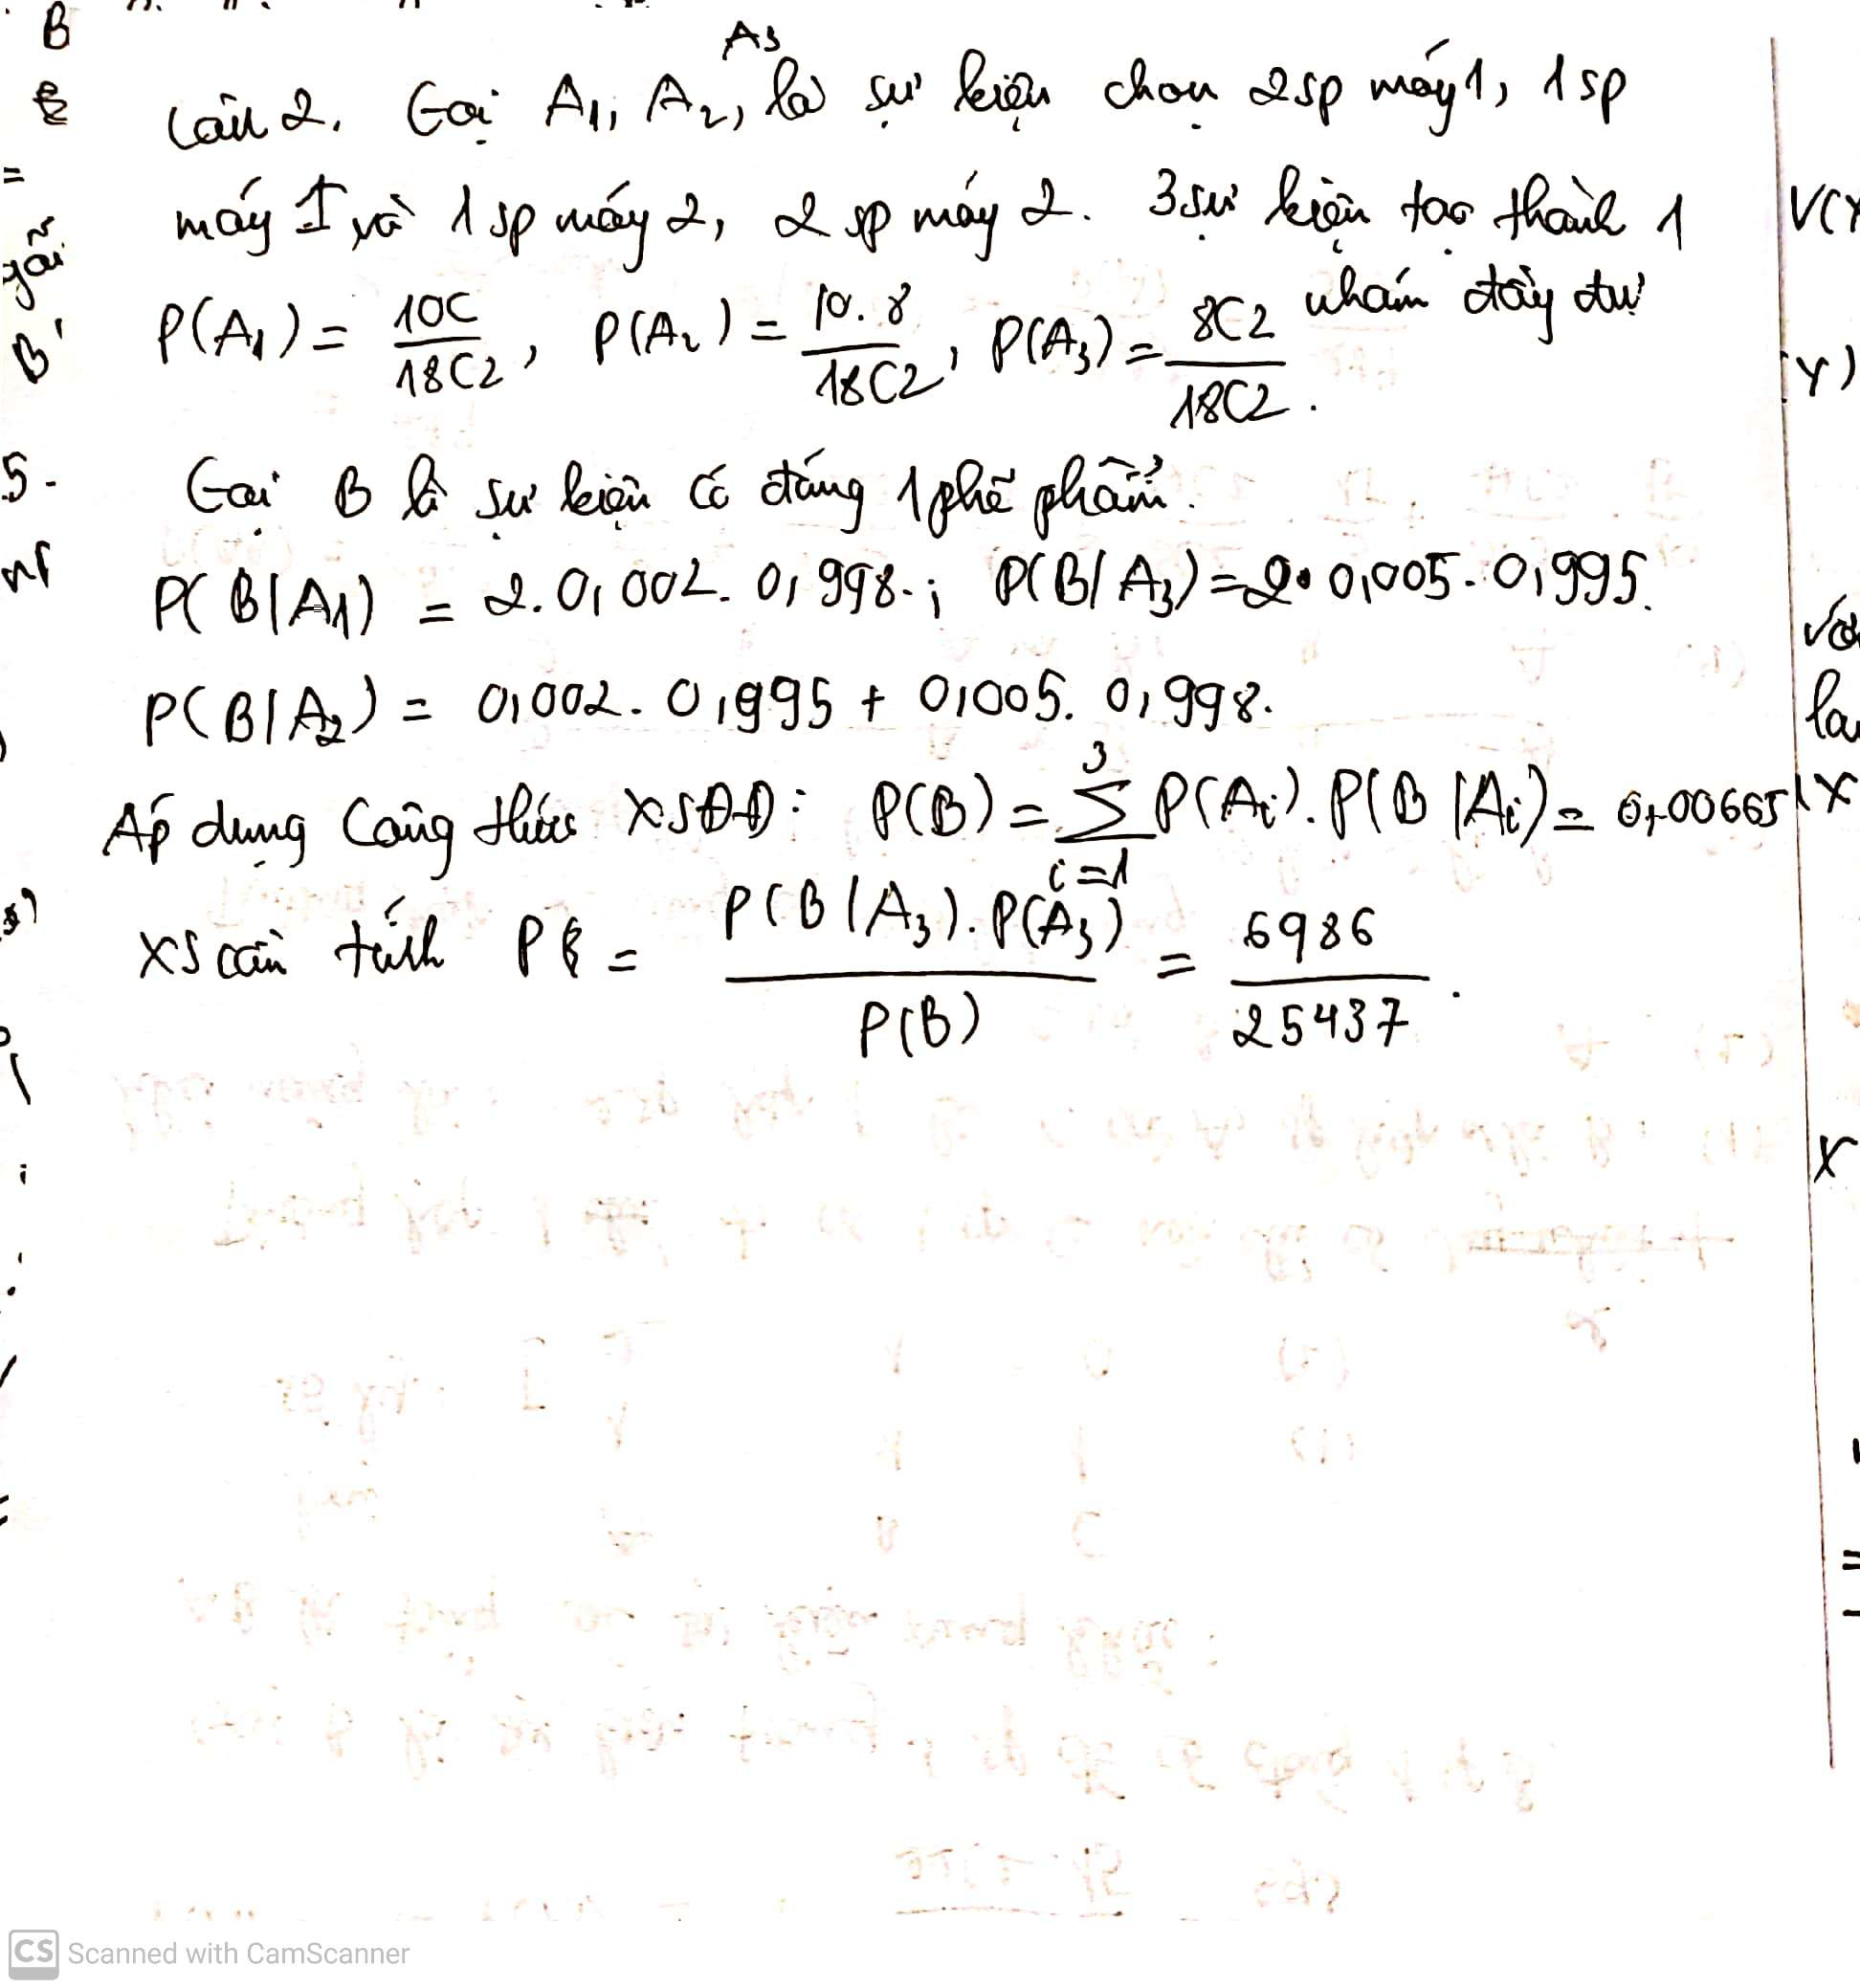 B
A3
Câu 2. Gọi A1, A2, là sự kiện chọn 2sp máy 1, 1 sp
máy 1 và 1 sp máy 2, 2 sp máy 2. 3 sự kiện tạo thành 1
nhóm đầy đủ
P(A1) = 10C / 18C2, P(A2) = 10.8 / 18C2, P(A3) = 8C2 / 18C2.
Gọi B là sự kiện có đúng 1 phế phẩm.
P(B|A1) = 2.0,002.0,998.; P(B|A3) = 2.0,005.0,995.
P(B|A2) = 0,002.0,995 + 0,005.0,998.
Áp dụng Công thức XSĐĐ: P(B) = 3 Σ i=1 P(Ai).P(B|Ai) = 0,00665
XS cần tính P = P(B|A3).P(A3) / P(B) = 6986 / 25437.
CS Scanned with CamScanner